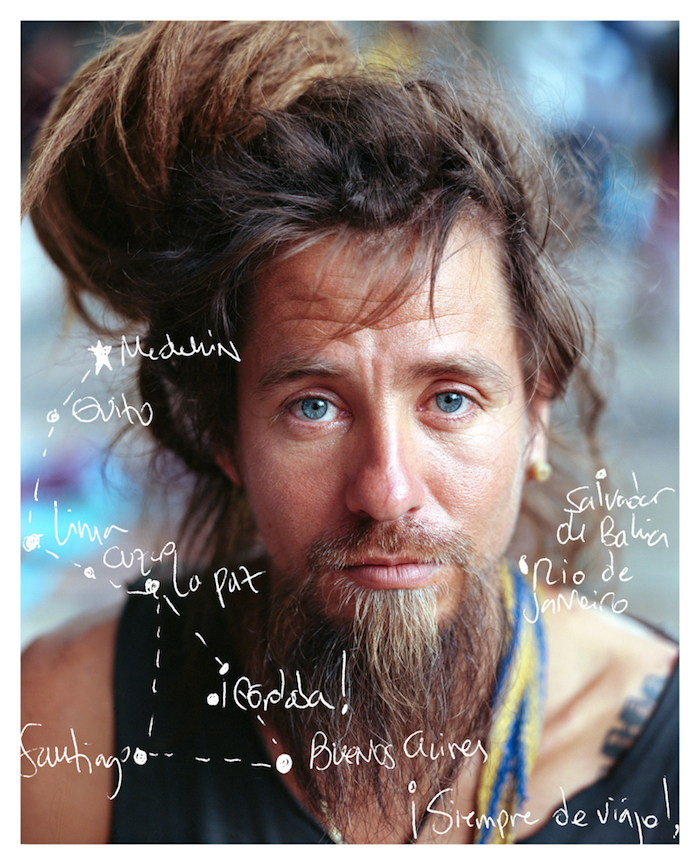 Medellin
Quito
Lima
Cuzco
La Paz
Salvador
de Bahia
Rio de
Janeiro
¡Córdoba!
Santiago
Buenos Aires
¡Siempre de viaje!,